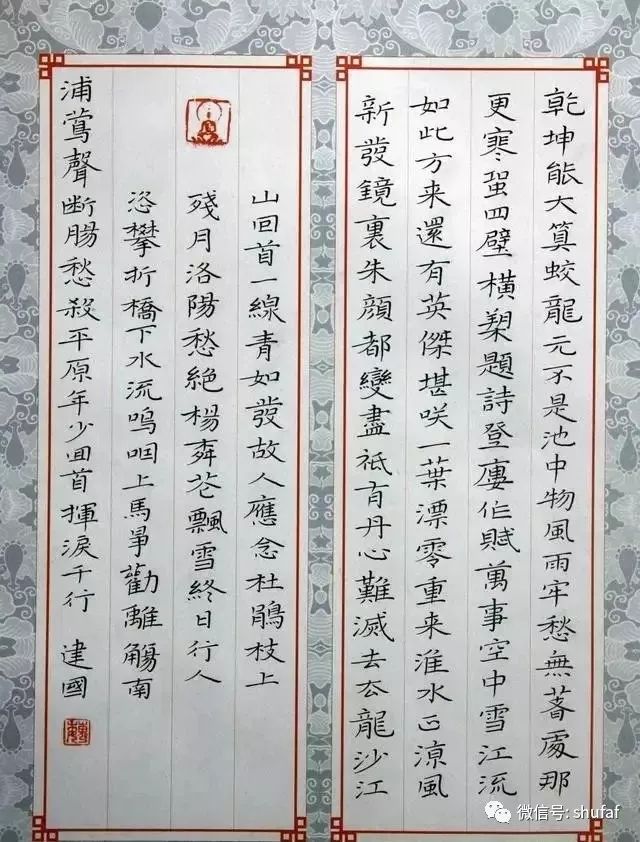 乾坤能大算蛟龍元不是池中物風雨牢愁無著處那
更寒蛩四壁橫槊題詩登廔作賦萬事空中雪江流
如此方来還有英傑堪咲一葉漂零重来淮水正涼風
新發鏡裏朱顏都變盡祗有丹心難滅去去龍沙江
山回首一線青如發故人應念杜鵑枝上
殘月洛陽愁絕楊桺花飄雪終日行人
恣攀折橋下水流嗚咽上馬爭勸離觴南
浦鶯聲断腸愁殺平原年少回首揮淚千行 建國
微信号: shufaf